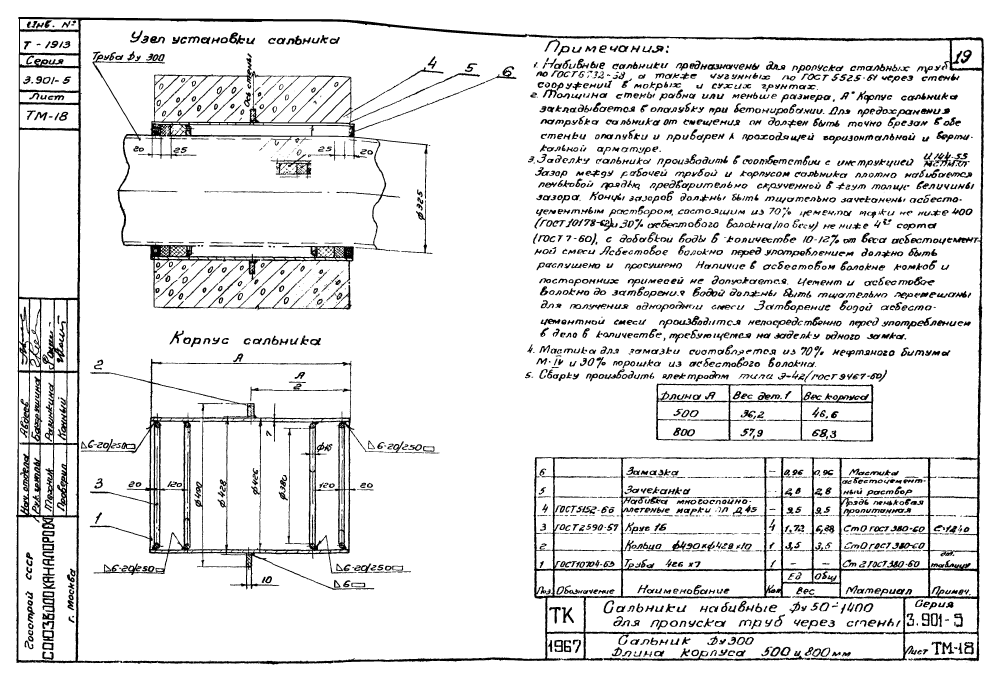 Инв. №
Т - 1913
Серия
3.901-5
Лист
ТМ-18
Узел установки сальника
Труба Ду 300
Ось стены
4
5
6
20
25
25
20
ф325
Корпус сальника
А
А
2
2
7
ф16
Δ6-20/250
Δ6-20/250
20
120
ф490
ф428
ф426
ф380
120
20
3
1
Δ6-20/250
Δ6-20/250
10
Δ6
19
Примечания:
1. Набивные сальники предназначены для пропуска стальных труб
по ГОСТ 8732-58, а также чугунных по ГОСТ 5525-61 через стены
сооружений в мокрых и сухих грунтах.
2. Толщина стены равна или меньше размера „А" Корпус сальника
закладывается в опалубку при бетонировании. Для предохранения
патрубка сальника от смещения он должен быть точно врезан в обе
стенки опалубки и приварен к проходящей горизонтальной и верти-
кальной арматуре.
3. Заделку сальника производить в соответствии с инструкцией И 144-55
Зазор между рабочей трубой и корпусом сальника плотно набивается
пеньковой прядью, предварительно скрученной в жгут толще величины
зазора. Концы зазоров должны быть тщательно зачеканены асбесто-
цементным раствором, состоящим из 70% цемента марки не ниже 400
(ГОСТ 10178-62) и 30% асбестового волокна (по весу) не ниже 4го сорта
(ГОСТ 7-60), с добавкой воды в количестве 10-12% от веса асбестоцемент-
ной смеси Асбестовое волокно перед употреблением должно быть
распушено и просушено Наличие в асбестовом волокне комков и
посторонних примесей не допускается. Цемент и асбестовое
волокно до затворения водой должны быть тщательно перемешаны
для получения однородной смеси Затворение водой асбесто-
цементной смеси производится непосредственно перед употреблением
в дело в количестве, требующемся на заделку одного замка.
4. Мастика для замазки составляется из 70% нефтяного битума
М-IV и 30% порошка из асбестового волокна.
5. Сварку производить электродом типа Э-42 (ГОСТ 9467-60)
Длина А Вес дет. 1 Вес корпуса
500 36,2 46,6
800 57,9 68,3
6 Замазка - 0,96 0,96 Мастика
5 Зачеканка - 2,8 2,8 асбестоцемент-ный раствор
4 ГОСТ 5152-66 Набивка многослойно-плетеные марки ПП Д 45 - 9,5 9,5 Прядь пеньковая пропитанная
3 ГОСТ 2590-57 Круг 16 4 1,72 6,88 Ст0 ГОСТ 380-60 ℓ-1240
2 Кольцо ф490×ф428×10 1 3,5 3,5 Ст0 ГОСТ 380-60
1 ГОСТ 10704-63 Труба 426×7 1 - - Ст 2 ГОСТ 380-60 см. таблицу
Поз. Обозначение Наименование Кол Ед Общ Вес Материал Примеч.
ТК
Сальники набивные Ду 50-1400
для пропуска труб через стены
Серия
3.901-5
1967
Сальник Ду300
Длина корпуса 500 и 800 мм
Лист ТМ-18
Нач. отдела Авдеев
Рук. группы
Техник
Проверил
Госстрой СССР
СОЮЗВОДОКАНАЛПРОЕКТ
г. Москва